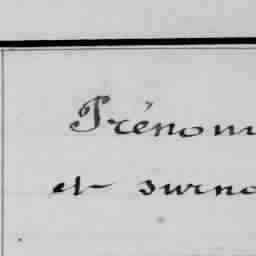 Prénom
et surno